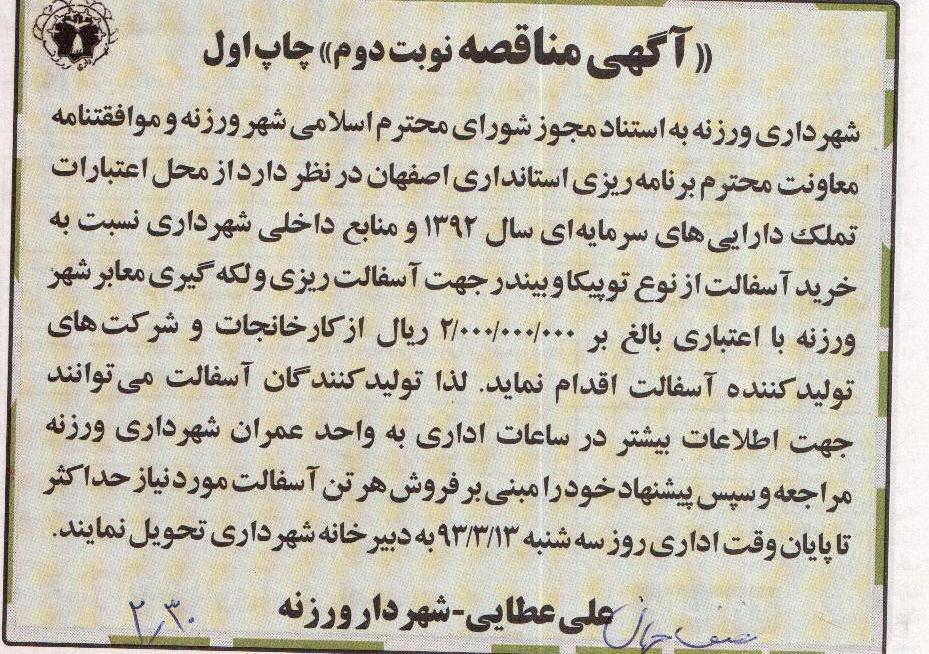 «آگهی مناقصه نوبت دوم» چاپ اول
شهرداری ورزنه به استناد مجوز شورای محترم اسلامی شهر ورزنه و موافقتنامه
معاونت محترم برنامه ریزی استانداری اصفهان در نظر دارد از محل اعتبارات
تملک دارایی های سرمایه ای سال ۱۳۹۲ و منابع داخلی شهرداری نسبت به
خرید آسفالت از نوع توپیکا و بیندر جهت آسفالت ریزی و لکه گیری معابر شهر
ورزنه با اعتباری بالغ بر ۲/۰۰۰/۰۰۰/۰۰۰ ریال از کارخانجات و شرکت های
تولید کننده آسفالت اقدام نماید. لذا تولید کنندگان آسفالت می توانند
جهت اطلاعات بیشتر در ساعات اداری به واحد عمران شهرداری ورزنه
مراجعه و سپس پیشنهاد خود را مبنی بر فروش هر تن آسفالت مورد نیاز حداکثر
تا پایان وقت اداری روز سه شنبه ۹۳/۳/۱۳ به دبیرخانه شهرداری تحویل نمایند.
علی عطایی-شهردار ورزنه
نصف جهان ۲٫۳۰